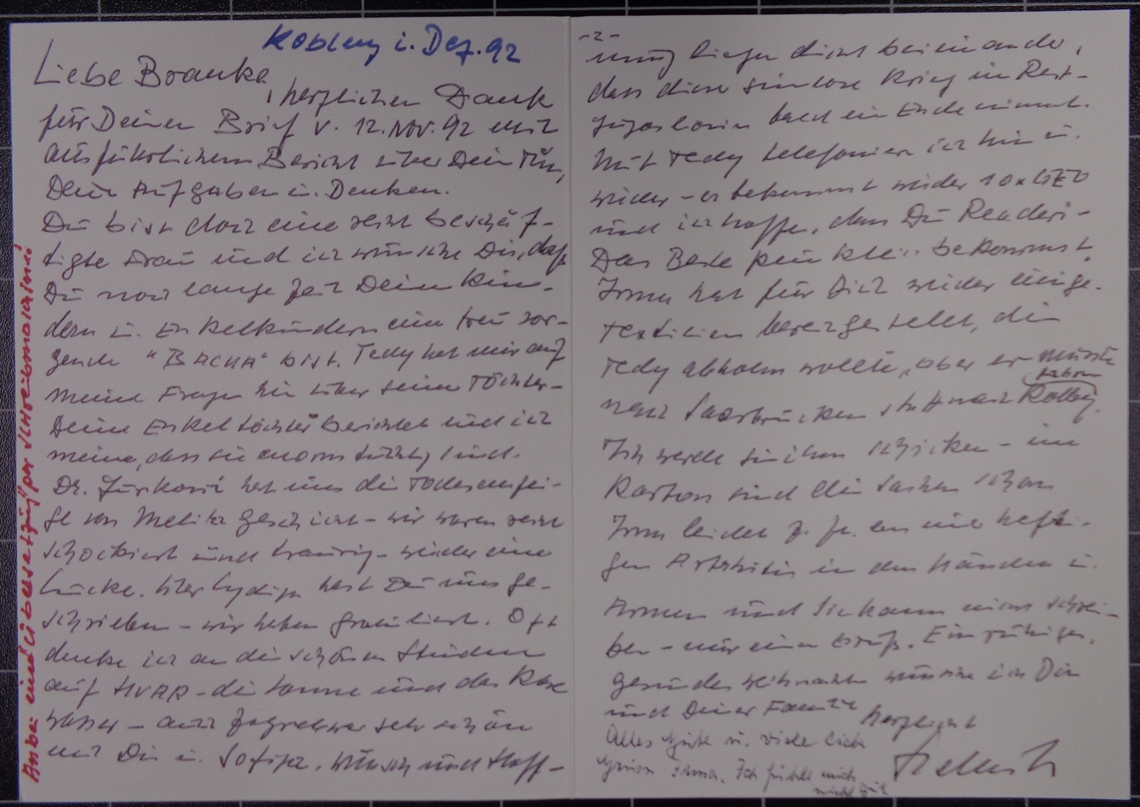 Koblenz i. Dez. 92
Liebe Branka,
herzlichen Dank
für Deinen Brief v. 12. Nov. 92 mit
ausführlichem Bericht über Dein Tun,
Dein Aufgaben u. Denken.
Du bist doch eine sehr beschäf-
tigte Frau und ich wünsche Dir, daß
Du noch lange Zeit Deinen Kin-
dern u. Enkelkindern eine treu sor-
gende "BACHA" bist. Tedy hat mir auf
meine Fragen hin über seine Töchter-
Deine Enkeltöchter berichtet und ich
meine, dass sie enorm tüchtig sind.
Dr. hat uns die Todesanzei-
ge von Melita geschickt - wir waren sehr
schockiert und traurig - wieder eine
Lücke. Über Lydija hast Du uns ge-
schrieben - wir haben gratuliert. Oft
denke ich an die schönen Stunden
auf HVAR - die Sonne und das klare
Wasser - auch Zagreb war sehr schön
mit Dir u. . Wunsch und Hoff-
Anbei eine Übersetzung per Schreibmaschine
-2-
nung liegen dicht beieinander,
dass dieser sinnlose Krieg in Rest-
Jugoslavien bald ein Ende nimmt.
Mit Tedy telefoniere ich hin u.
wieder - er bekommt wieder 10x GEO
und ich hoffe, dass Du Readers-
Das Beste pünktlich bekommst.
Irma hat für Dich wieder einige
Textilien bereitgestellt, die
Tedy abholen wollte, aber er musste
nach Saarbrücken statt nach
Ich werde sie ihm schicken - im
Karton sind die Sachen schon
Irma leidet z. Zt. an einer hefti-
gen Arthritis in den Händen u.
Armen und sie kann nicht schrei-
ben - nur einen Gruß. Ein ruhiges,
gesundes Weihnachten wünsche ich Dir
und Deiner Familie herzlichst
Alles Gute u. viele liebe
Grüsse Irma. Ich fühle mich
nicht gut